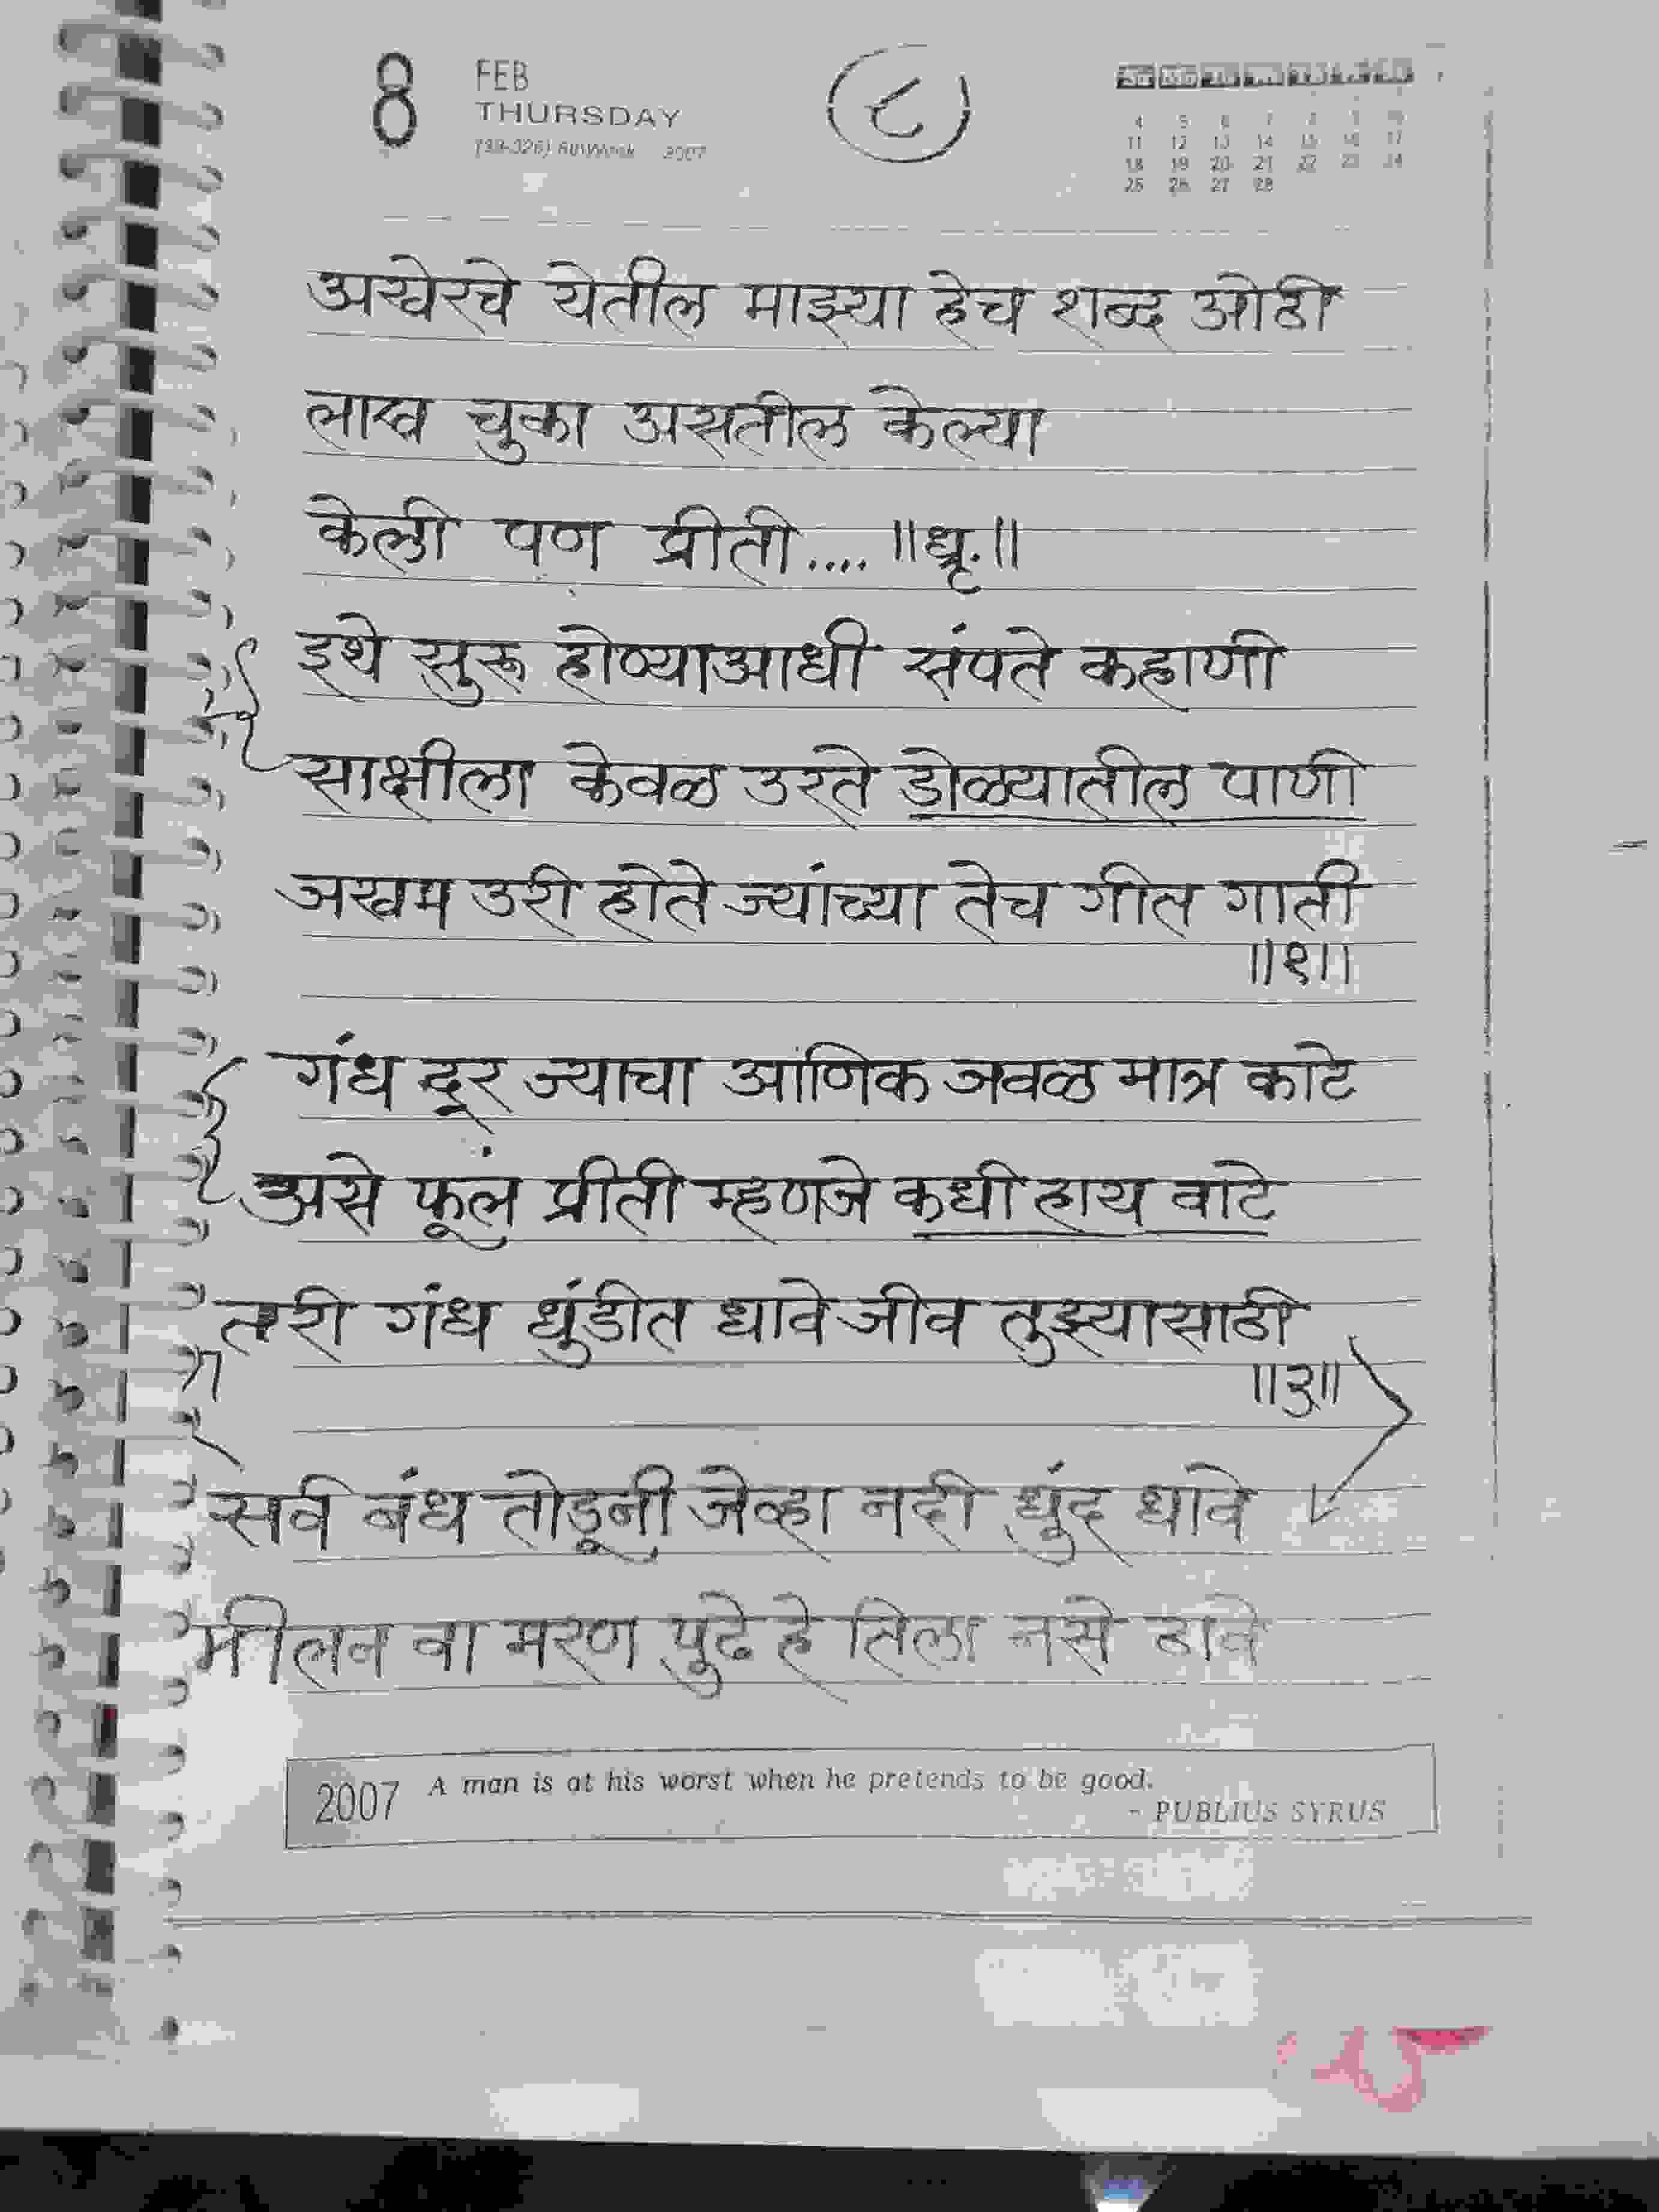 8 FEB
THURSDAY
८
4 5 6 7 8 9 10
11 12 13 14 15 16 17
18 19 20 21 22 23 24
25 26 27 28
अखेरचे येतील माझ्या हेच शब्द ओठी
लाख चुका असतील केल्या
केली पण प्रीती.... ॥धृ.॥
इथे सुरू होण्याआधी संपते कहाणी
साक्षीला केवळ उरते डोळ्यातील पाणी
जखम उरी होते ज्यांच्या तेच गीत गाती
॥१॥
गंध दूर ज्याचा आणिक जवळ मात्र काटे
असे फूल प्रीती म्हणजे कधी हाय वाटे
तरी गंध धुंडीत धावे जीव तुझ्यासाठी
॥२॥
सर्व बंध तोडूनी जेव्हा नदी धुंद धावे
मीलन वा मरण पुढे हे तिला नसे ठावे
2007 A man is at his worst when he pretends to be good.
- PUBLIUS SYRUS